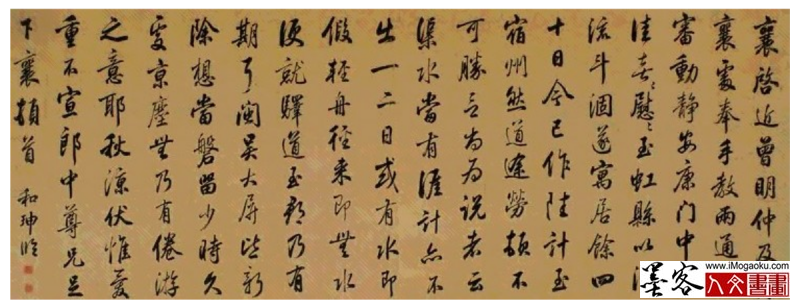 襄啓近曾明仲及
襄處奉手教兩通
審動靜安康門中
佳喜〻慰〻至虹縣以汴
流斗涸遂寓居餘四
十日今已作陸計至
宿州然道途勞頓不
可勝言尚為說者云
渠水當有涯計亦不
出一二日或有水即
假輕舟徑來即無水
便就驛道至都乃有
期耳閩吳大屏皆新
除想當磐留少時久
處京塵無乃有倦游
之意耶秋涼伏惟愛
重不宣郎中尊兄足
下襄頓首
和珅臨
墨客
www.iMogaoku.com
人文書畫